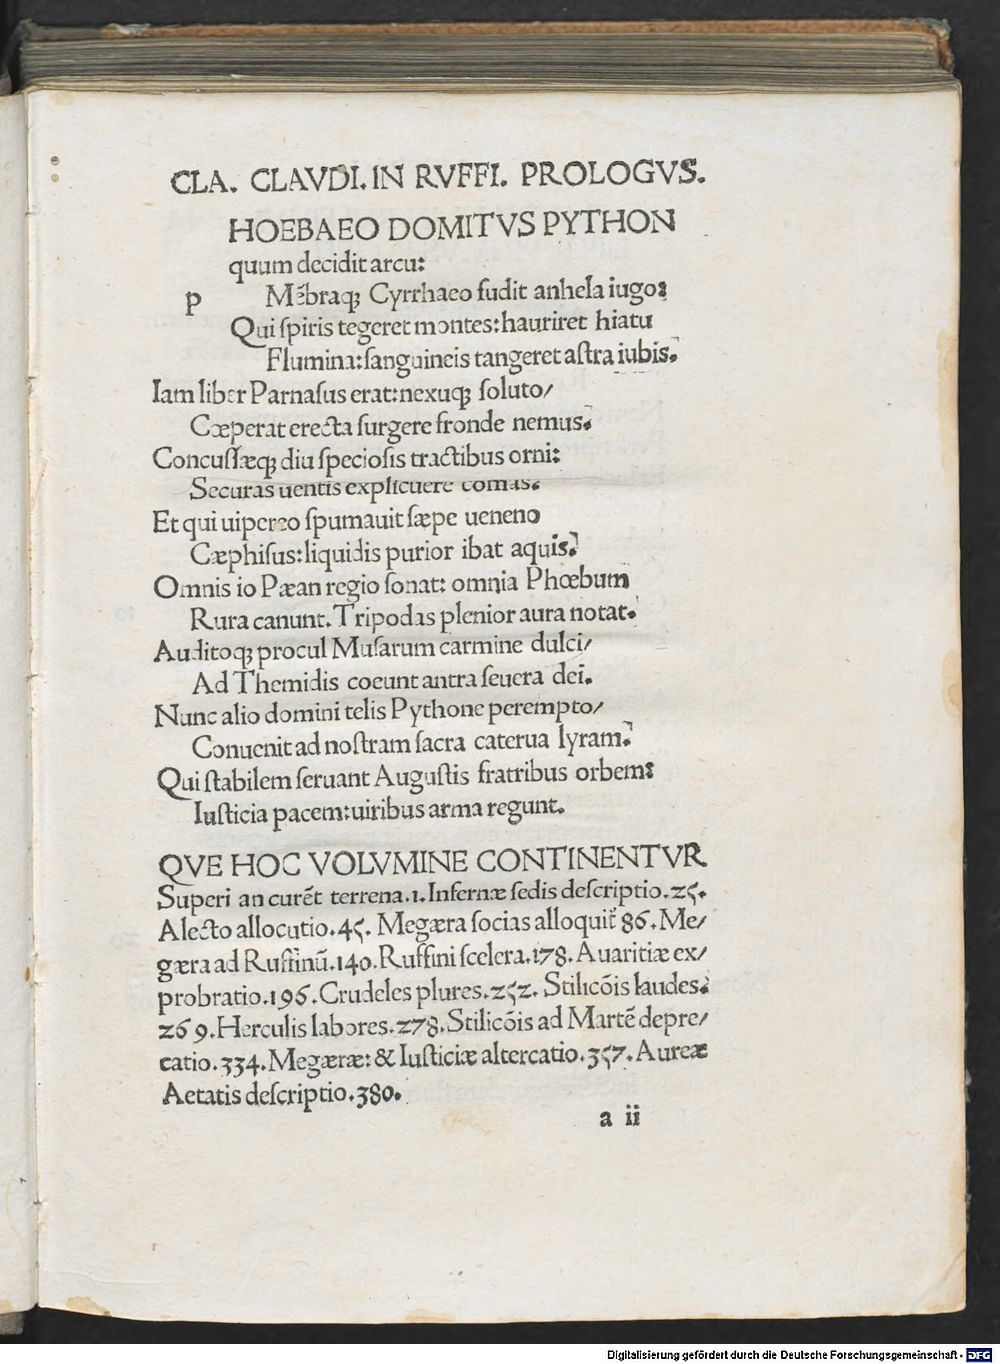 CLA. CLAVDI. IN RVFFI. PROLOGVS.
HOEBAEO DOMITVS PYTHON
quum decidit arcu:
p Mẽbraqꝫ Cyrrhaeo fudit anhela iugo:
Qui spiris tegeret montes: hauriret hiatu
Flumina: sanguineis tangeret astra iubis.
Iam liber Parnasus erat: nexuqꝫ soluto/
Cœperat erecta surgere fronde nemus.
Concussæqꝫ diu speciosis tractibus orni:
Securas uentis explicuere comas.
Et qui uipereo spumauit sæpe ueneno
Cæphisus: liquidis purior ibat aquis.
Omnis io Pæan regio sonat: omnia Phœbum
Rura canunt. Tripodas plenior aura notat.
Auditoqꝫ procul Musarum carmine dulci/
Ad Themidis coeunt antra seuera dei.
Nunc alio domini telis Pythone perempto/
Conuenit ad nostram sacra caterua lyram.
Qui stabilem seruant Augustis fratribus orbem:
Iusticia pacem: uiribus arma regunt.
QVE HOC VOLVMINE CONTINENTVR
Superi an curẽt terrena.1. Infernæ sedis descriptio.25.
Alecto allocutio.45. Megæra socias alloquit̃ 86. Me/
gæra ad Ruffinũ.140. Ruffini scelera.178. Auaritiæ ex/
probratio.196. Crudeles plures.252. Stilicõis laudes.
269. Herculis labores.278. Stilicõis ad Martẽ depre/
catio.334. Megæræ: & Iusticiæ altercatio.357. Aureæ
Aetatis descriptio.380.
a ii
Digitalisierung gefördert durch die Deutsche Forschungsgemeinschaft - DFG